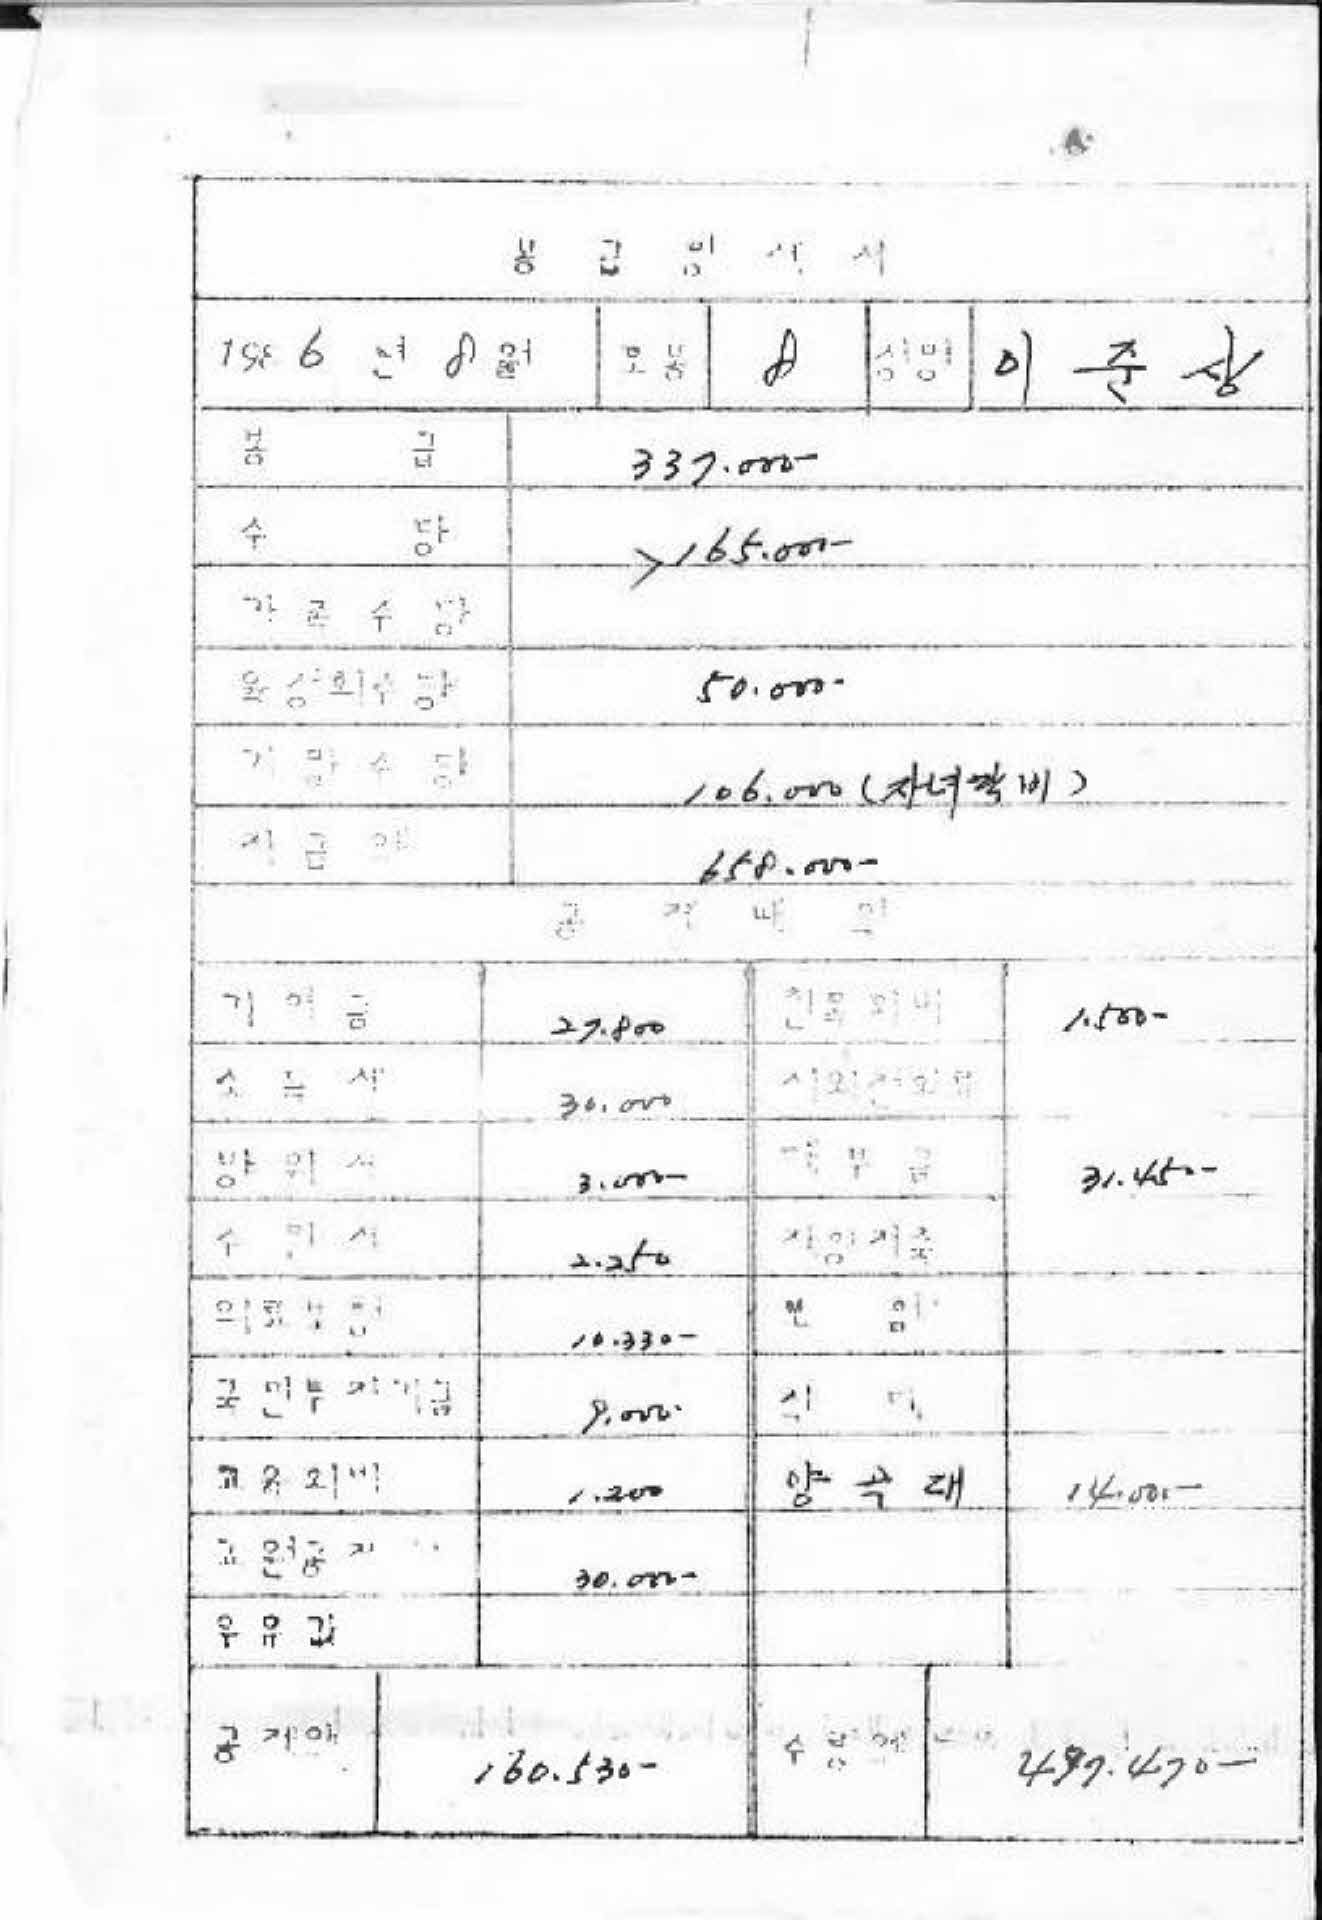 봉 급 명 세 서
1986 년 8 월 번 호 8 성 명 이 준 상
봉 급 337.000-
수 당 165.000-
가 족 수 당
육성회수당 50.000-
기 말 수 당 106.000 (자녀학비)
지 급 액 658.000-
공 제 내 역
기 여 금 27.800 친 목 회 비 1.500-
소 득 세 30.000
방 위 세 3.000- 31.450-
주 민 세 2.250
의 료 보 험 10.330- 본 양
국 민 투 자 기 금 9.000- 식 미
교 육 회 비 1.200 양 곡 대 14.000-
교 원 공 제 30.000-
우 유 값
공 제 액 160.530- 수 령 액 497.470-